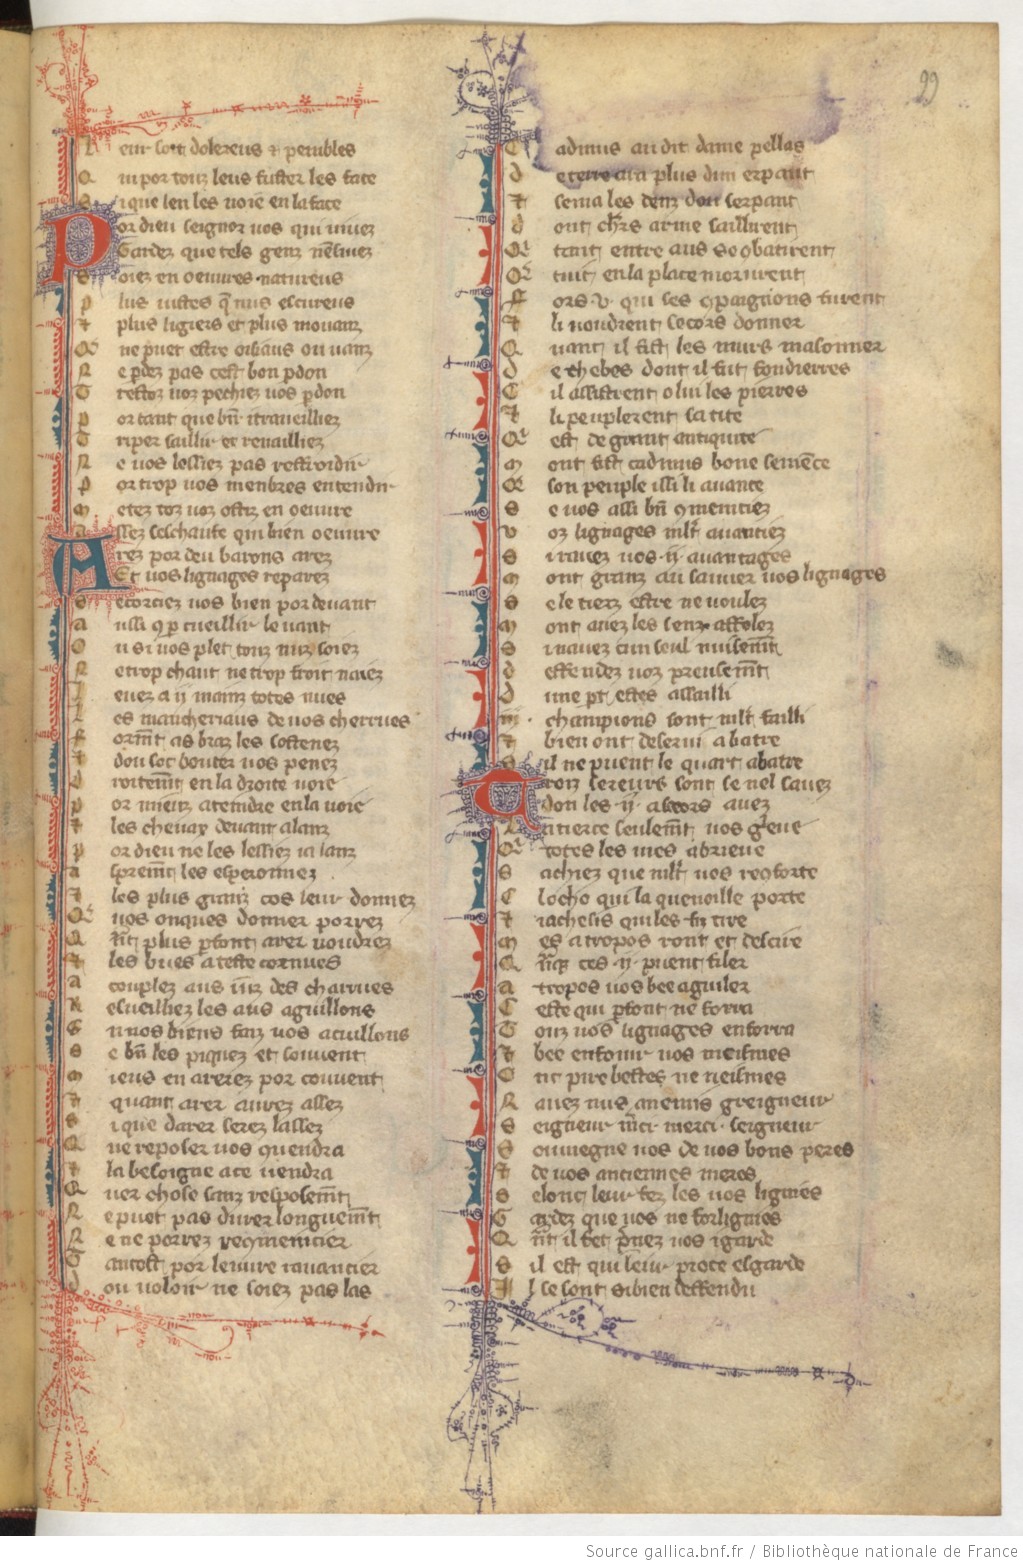 99
L eur sont dolereus ⁊ penibles
Q ui por touz leus fuster les face
S i que len les voie en la face
Por dieu seignor vos qui vivez
Gardez que tels genz nensivez
S oiez en oeuvres natureus
P lus vistes que nus escureus
⁊ plus ligiers et plus movanz
Q ne puet estre oisiaus ou vanz
N e perdez pas cest bon pardon
T restoz voz pechiez vos pardon
P or tant que bien i travailliez
T riper saillir et
N e vos lessiez pas refroidir
P or trop vos menbres entendrir
M etez toz voz ostiz en oeuvre
A ssez seschaufe qui bien oeuvre
Arez por deu barons arez
Et vos lignages reparez
S ecorciez vos bien par devant
A ussi com por cueillir le vant
O u si vos plet touz nuz soiez
N e trop chaut ne trop froit naiez
L evez a ii mainz totes nues
L es mancheriaus de vos cherrues
F orment as braz les sostenez
⁊ dou soc bouter vos penez
R oitement en la droite voie
P or mieuz ateindre en la voie
⁊ les chevax devant alanz
P or dieu ne les lessiez ia lanz
A sprement les esperonnez
⁊ les plus granz cos leur donnez
Q vos onques donner porrez
Q ant plus parfont arer voudrez
⁊ les bues a teste cornues
A couplez aus iuz des charrues
R esveilliez les aus aguillons
E n nos biens faiz vos acuillons
S e bien les piquez et souvent
M ieus en arerez por couvent
⁊ quant arer aurez assez
T i que darer serez lassez
Q ue reposer vos quendra
⁊ la besoigne a ce vendra
Q uer chose sanz resposement
N e puet pas durer longuement
N e ne porrez requmencier
T antost por leuvre ravancier
D ou voloir ne soiez pas las
C admus au dit dame pellas
D e terre ara plus dun erpant
⁊ sema les denz dou serpant
D ont chevaliers armé saillirent
Q tant entre aus se conbatirent
Q tuit en la place morurent
F ors v. qui ses compaignons furent
⁊ li voudrent secors donner
Q uant il fist les murs masonner
D e thebes dont il fut fondierres
C il assistrent o lui les pierres
⁊ li peuplerent sa cité
Q est de grant antiquité
M ont fist cadmus bone semence
Q son peuple issi li avance
S e vos assi bien commenciez
V oz lignages mult avanciez
S i ravez vos .ii. avantages
M ont granz au sauver vos lignages
S e le tierz estre ne voulez
M ont avez les senz affolez
S i navez cun seul nuisement
D effendez voz preusement
D une part estes assailli
iii. champions sont mult failli
⁊ bien ont deservi a batre
S il ne puent le quart abatre
Troiz sereurs sont se nel savez
Don les .ii. a secors avez
L a tierce seulement vos grieve
Q totes les vies abrieve
S achiez que mult vos reconforte
C locho qui la quenoille porte
⁊ lachesis qui les fiz tire
M es atropos ront et descire
Q anque ces .ii. puent filer
A tropos vos bee a guiler
C este qui parfont ne forra
T ouz vos lignages enforra
⁊ bee enfouir vos meismes
O nc pire bestes ne veismes
N avez nus anemis greigneur
S eigneur merci merci seigneur
S ouviegne vos de vos bons peres
⁊ de vos anciennes meres
S elonc leur fez les vos ligniés
G ardez que vos ne forligniés
Q ant il fet prenez vos i garde
S il est qui leur proece esgarde
I l se sont si bien deffendu
Source gallica.bnf.fr / Bibliothèque nationale de France